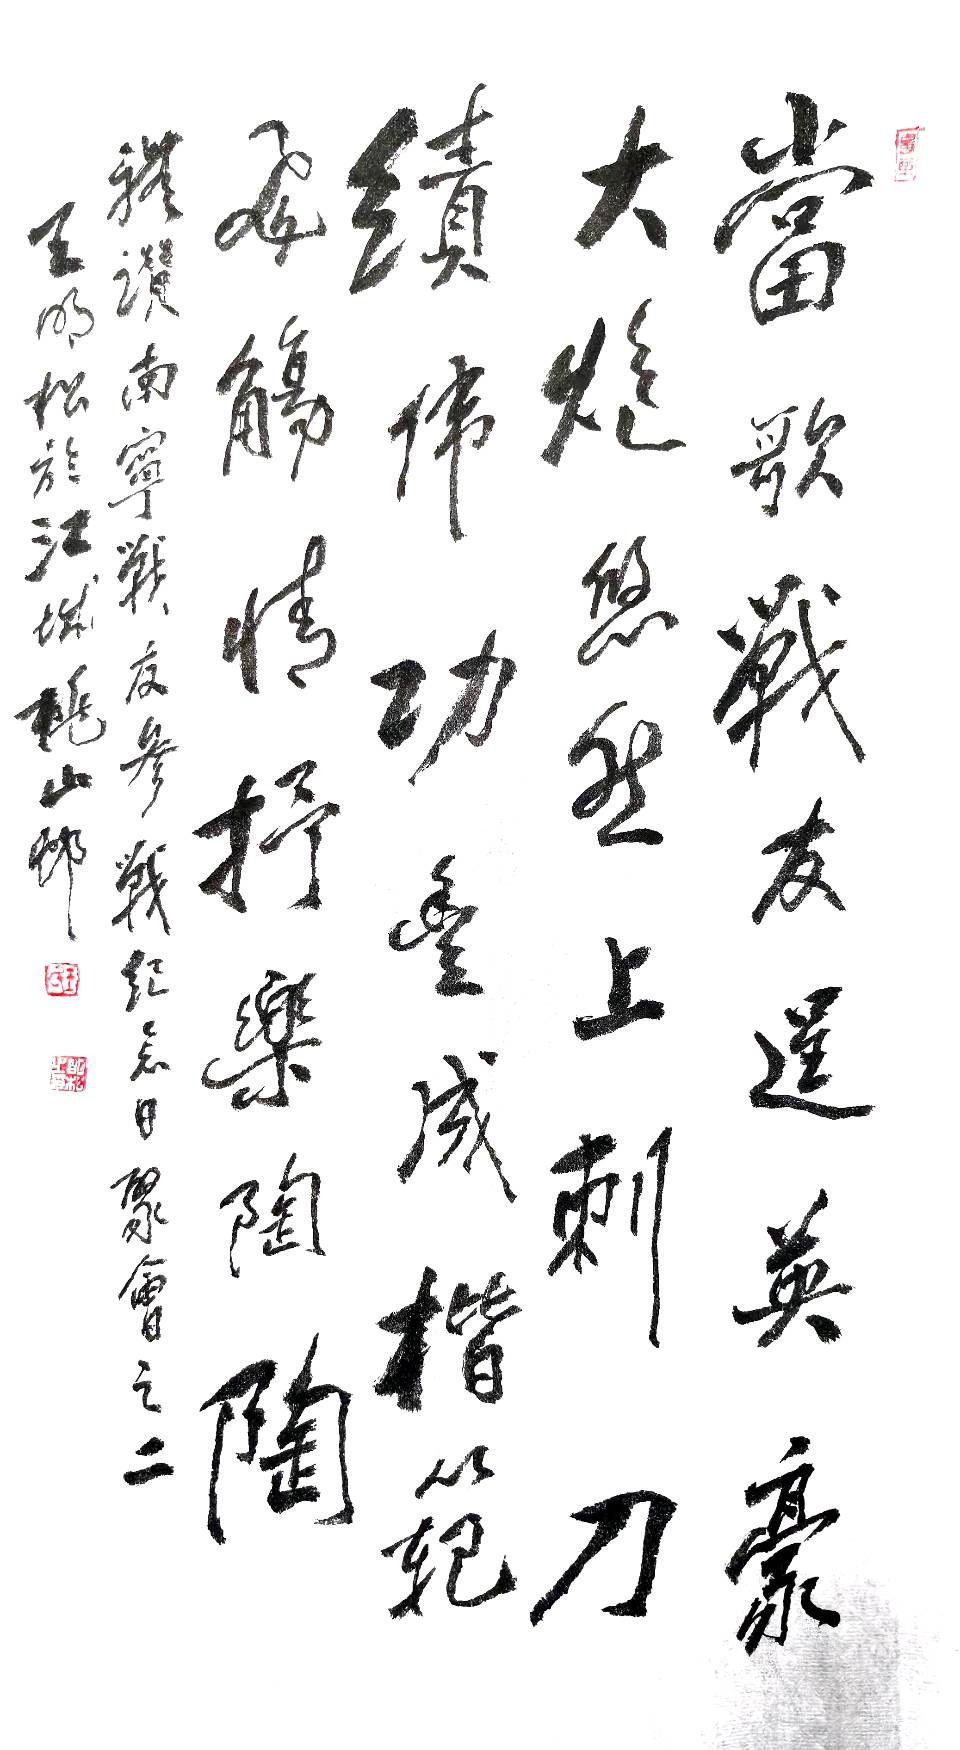 當歌戰友逞英豪
大炮悠然上刺刀
績偉功豐成楷範
飛觴情抒樂陶陶
禮讚南寧戰友參戰紀念日聚會之二
王明松於江城桃山邨